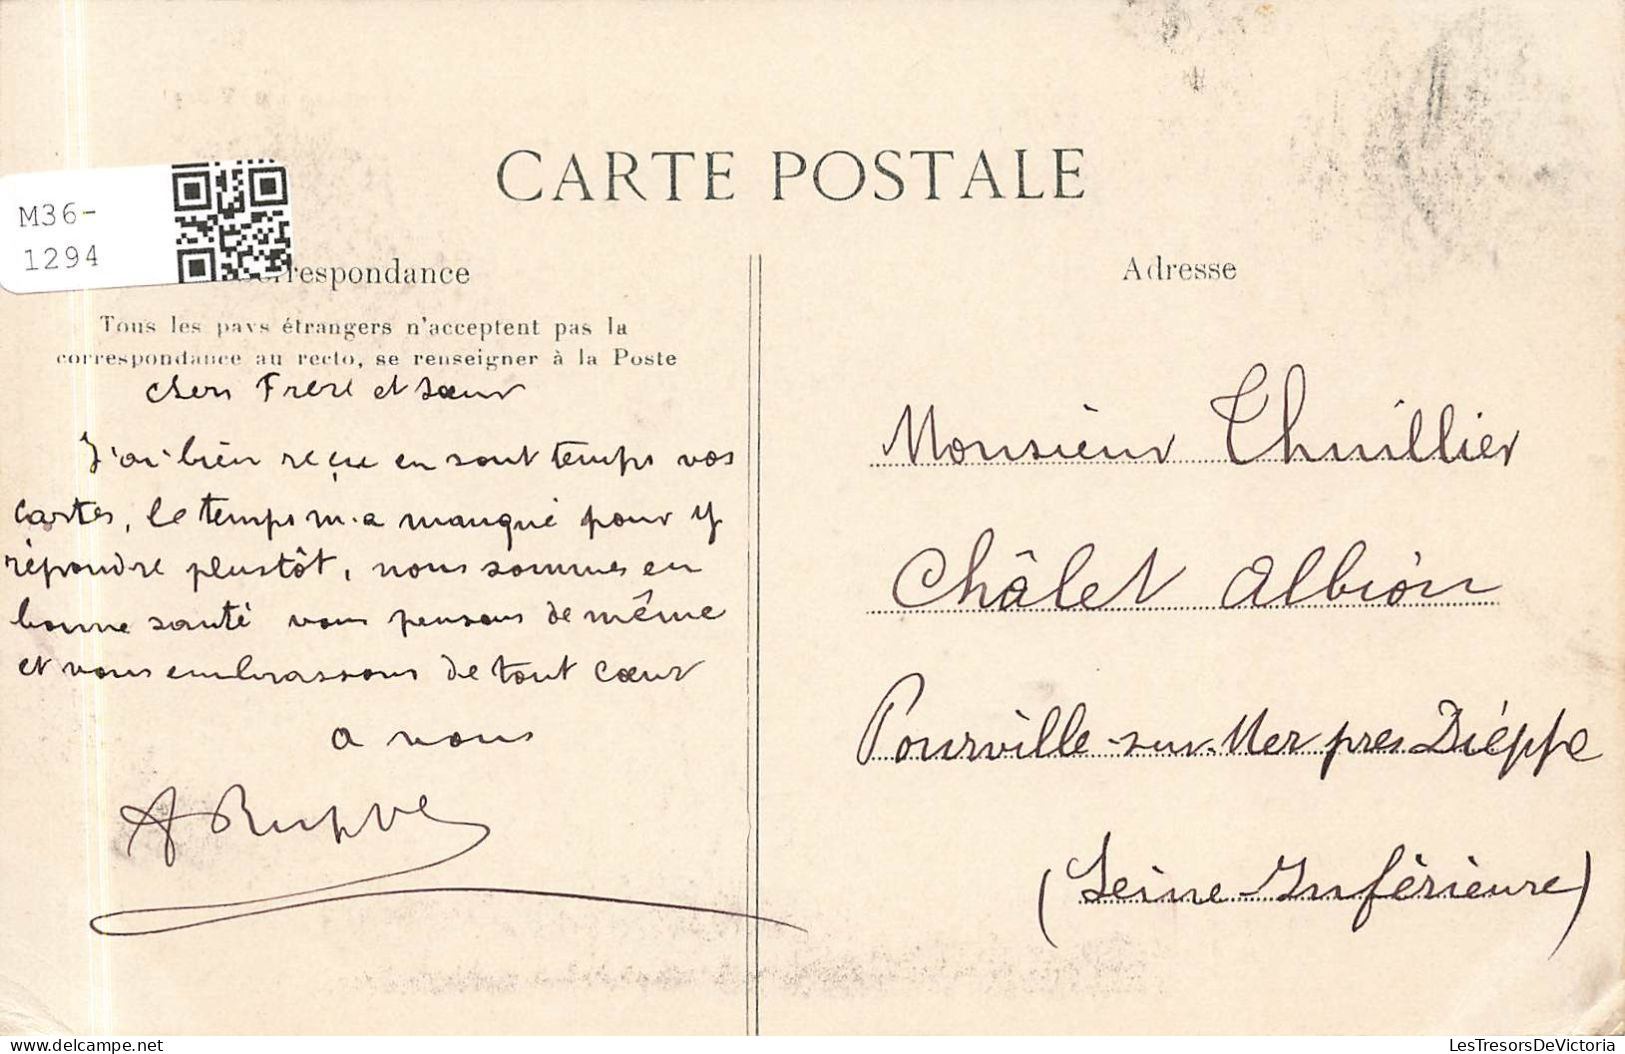 CARTE POSTALE
M36-
1294
Correspondance
Tous les pays étrangers n'acceptent pas la
correspondance au recto, se renseigner à la Poste
chers Frere et soeur
J'ai bien reçue en sont temps vos
cartes, le temps m'a manqué pour y
répondre plustôt, nous sommes en
bonne santé vous pensons de même
et vous embrassons de tout coeur
a vous
A
Adresse
Monsieur Thuillier
Châlet Albion
Pourville-sur-Mer pres Diéppe
(Seine-Inférieure)
LesTresorsDeVictoria
delcampe.net